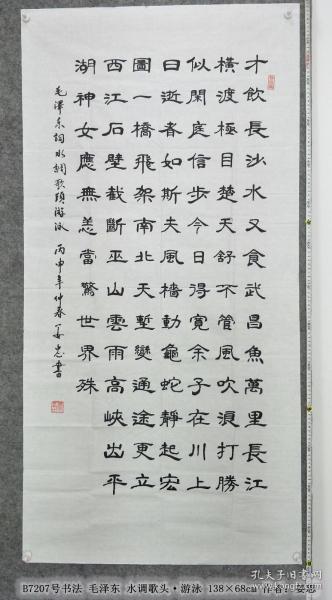 才飲長沙水又食武昌魚萬里長江
橫渡極目楚天舒不管風吹浪打勝
似閑庭信步今日得寬余子在川上
曰逝者如斯夫風檣動龜蛇靜起宏
圖一橋飛架南北天塹變通途更立
西江石壁截斷巫山雲雨高峽出平
湖神女應無恙當驚世界殊
毛澤東詞水調歌頭游泳 丙申年仲春 姜忠書
B7207号书法 毛泽东 水调歌头·游泳 138×68cm 作者：姜忠